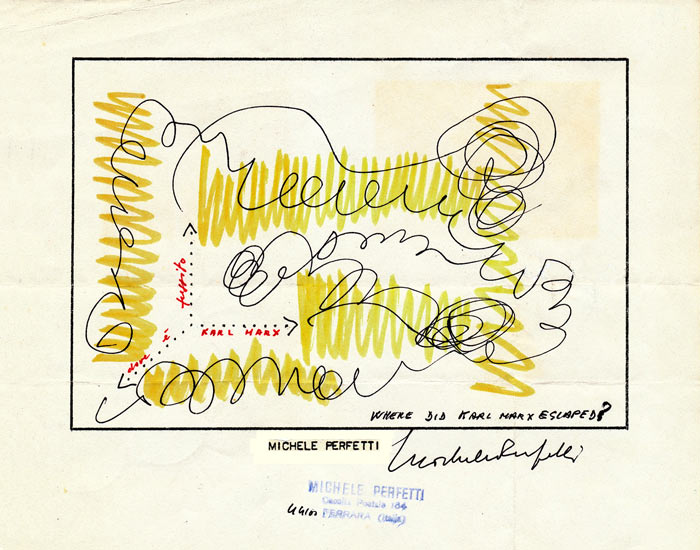 fuggito
KARL MARX
dove è
WHERE DID KARL MARX ESCAPED?
MICHELE PERFETTI
Michele Perfetti
MICHELE PERFETTI
Casella Postale 164
FERRARA (Italy)